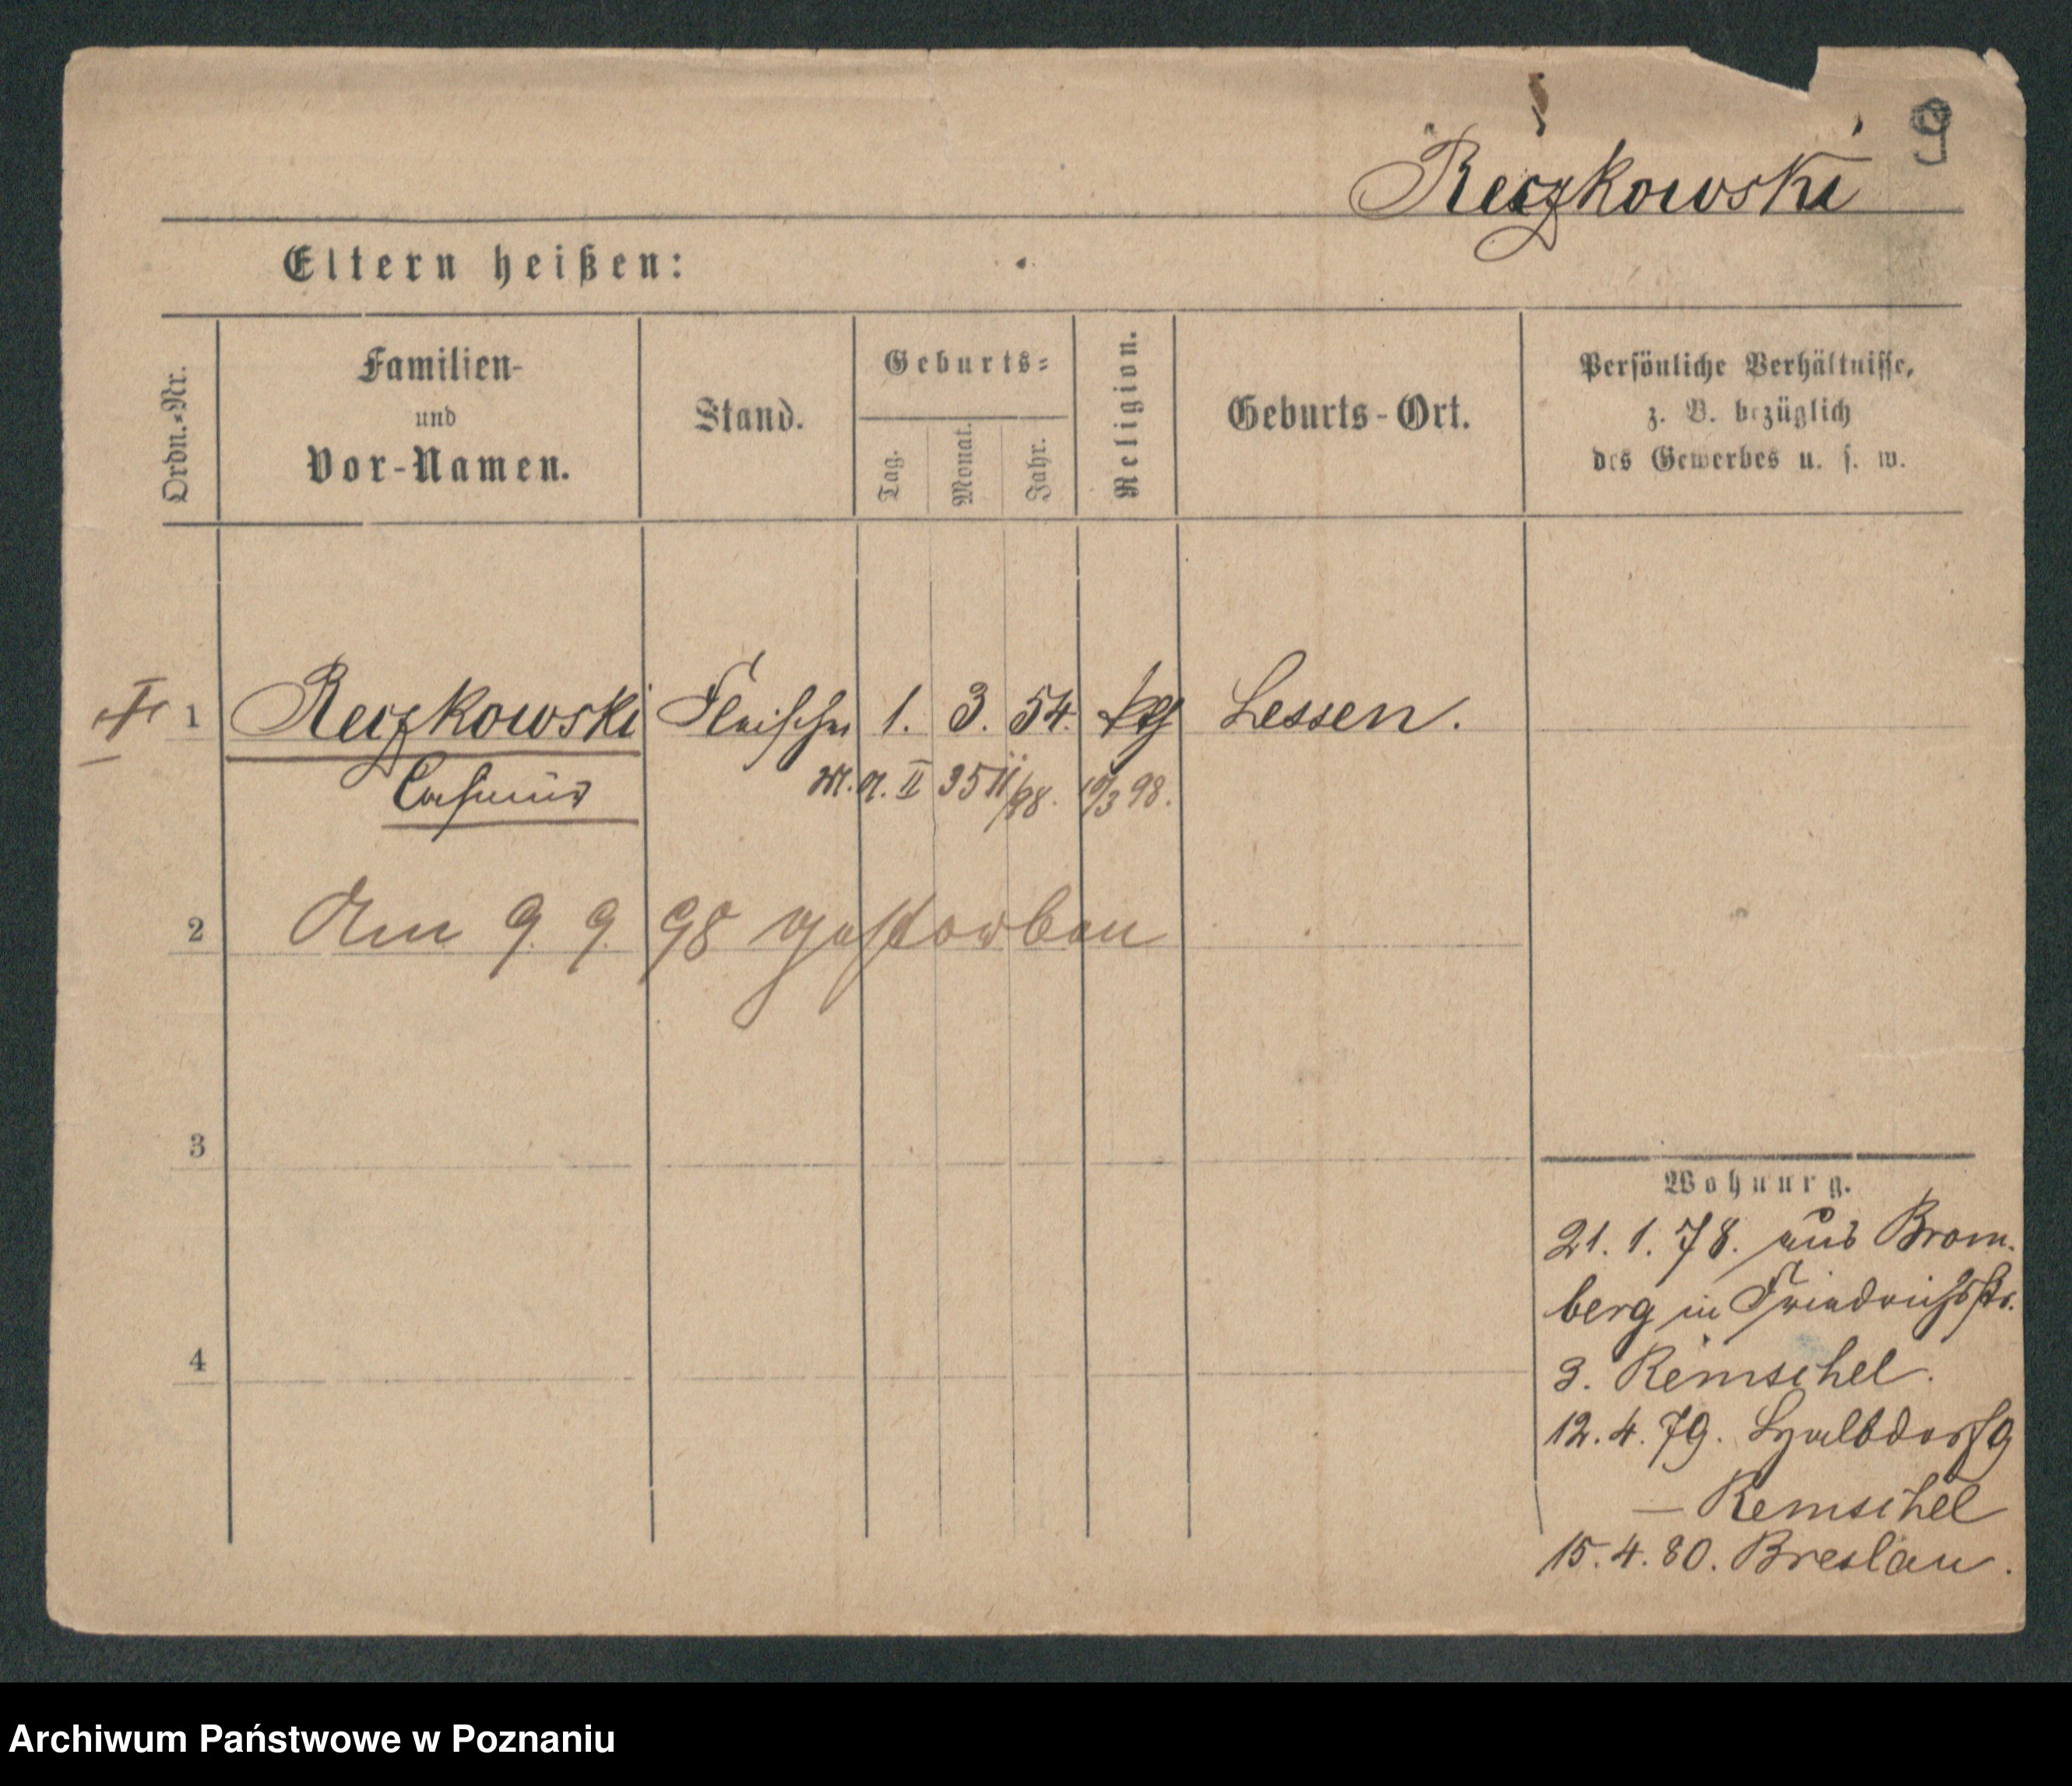 9
Reczkowski
Eltern heißen:
Ordn.-Nr.
Familien-
und
Vor-Namen.
Stand.
Geburts-
Tag.
Monat.
Jahr.
Religion.
Geburts-Ort.
Persönliche Verhältnisse,
z. B. bezüglich
des Gewerbes u. s. w.
1 Reczkowski Fleischer 1. 3. 54. Lessen.
Casimir
M. A. II 35 11/98. 19/3 98.
2 Am 9. 9. 98 gestorben
3
4
Wohnung.
21. 1. 78. aus Brom-
berg in Friedrichsstr.
3. Remschel.
12. 4. 79. Halbdorfg
— Remschel
15. 4. 80. Breslau.
Archiwum Państwowe w Poznaniu